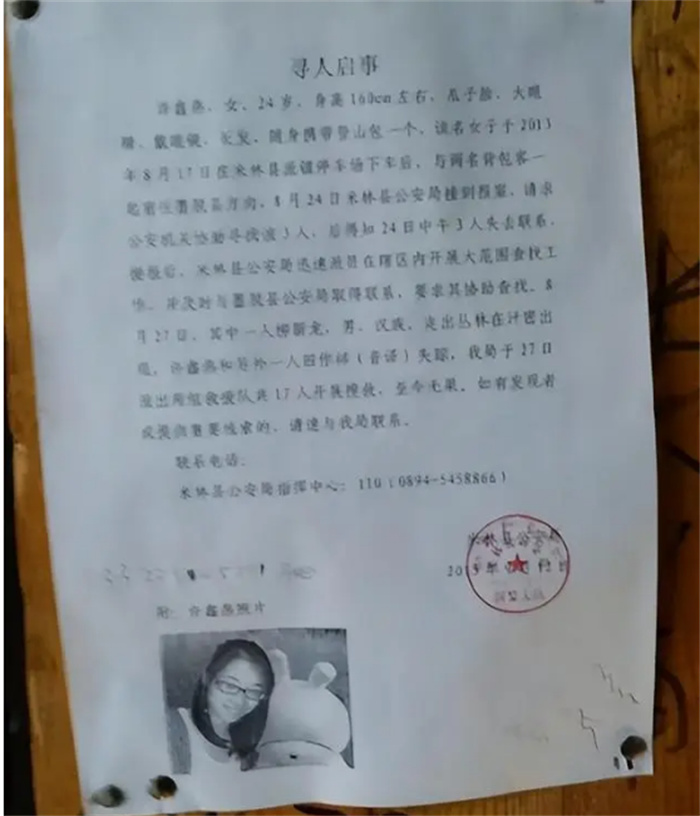 寻人启事
许鑫燕、女、24岁，身高160cm左右，瓜子脸、大眼
睛、戴眼镜、长发，随身携带登山包一个，该名女子于2013
年8月17日在米林县派镇停车场下车后，与两名背包客一
起前往墨脱县方向，8月24日米林县公安局接到报案，请求
公安机关协助寻找该3人，后得知24日中午3人失去联系，
接报后，米林县公安局迅速派员在辖区内开展大范围查找工
作，并及时与墨脱县公安局取得联系，要求其协助查找。8
月27日，其中一人柳新龙，男，汉族，走出丛林在汗密出
现，许鑫燕和另外一人（音译）失踪，我局于27日
派出两组救援队共17人开展搜救，至今无果。如有发现者
或提供重要线索的，请速与我局联系。
联系电话：
米林县公安局指挥中心：110（0894-5458866）
米林县公安局
附：许鑫燕照片